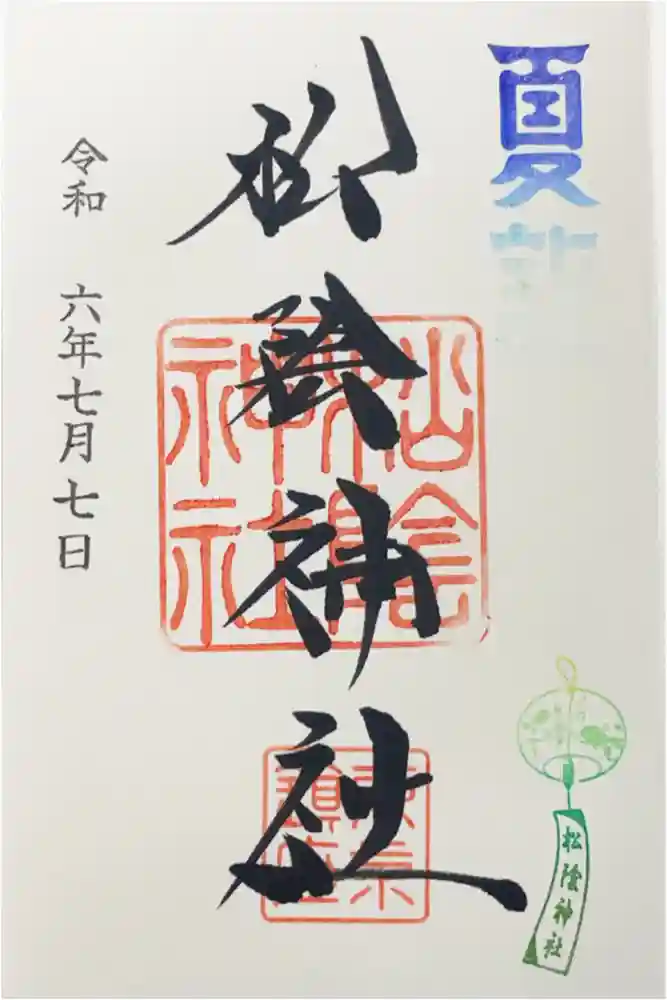 夏詣
松陰神社
松陰神社
東京鎮座
令和 六年七月七日
松陰神社